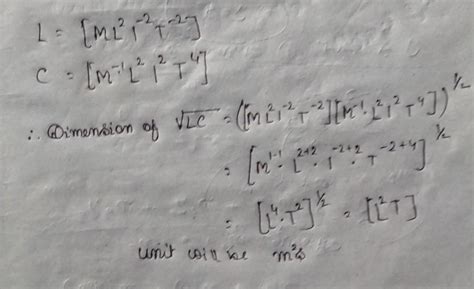 L = [ML²I⁻²T⁻²]
C = [M⁻¹L²I²T⁴]
∴ Dimension of √LC = ([ML²I⁻²T⁻²][M⁻¹L²I²T⁴])^½
= [M¹⁻¹ · L²⁺² · I⁻²⁺² · T⁻²⁺⁴]^½
= [L⁴·T²]^½ = [L²T]
unit will be m²s